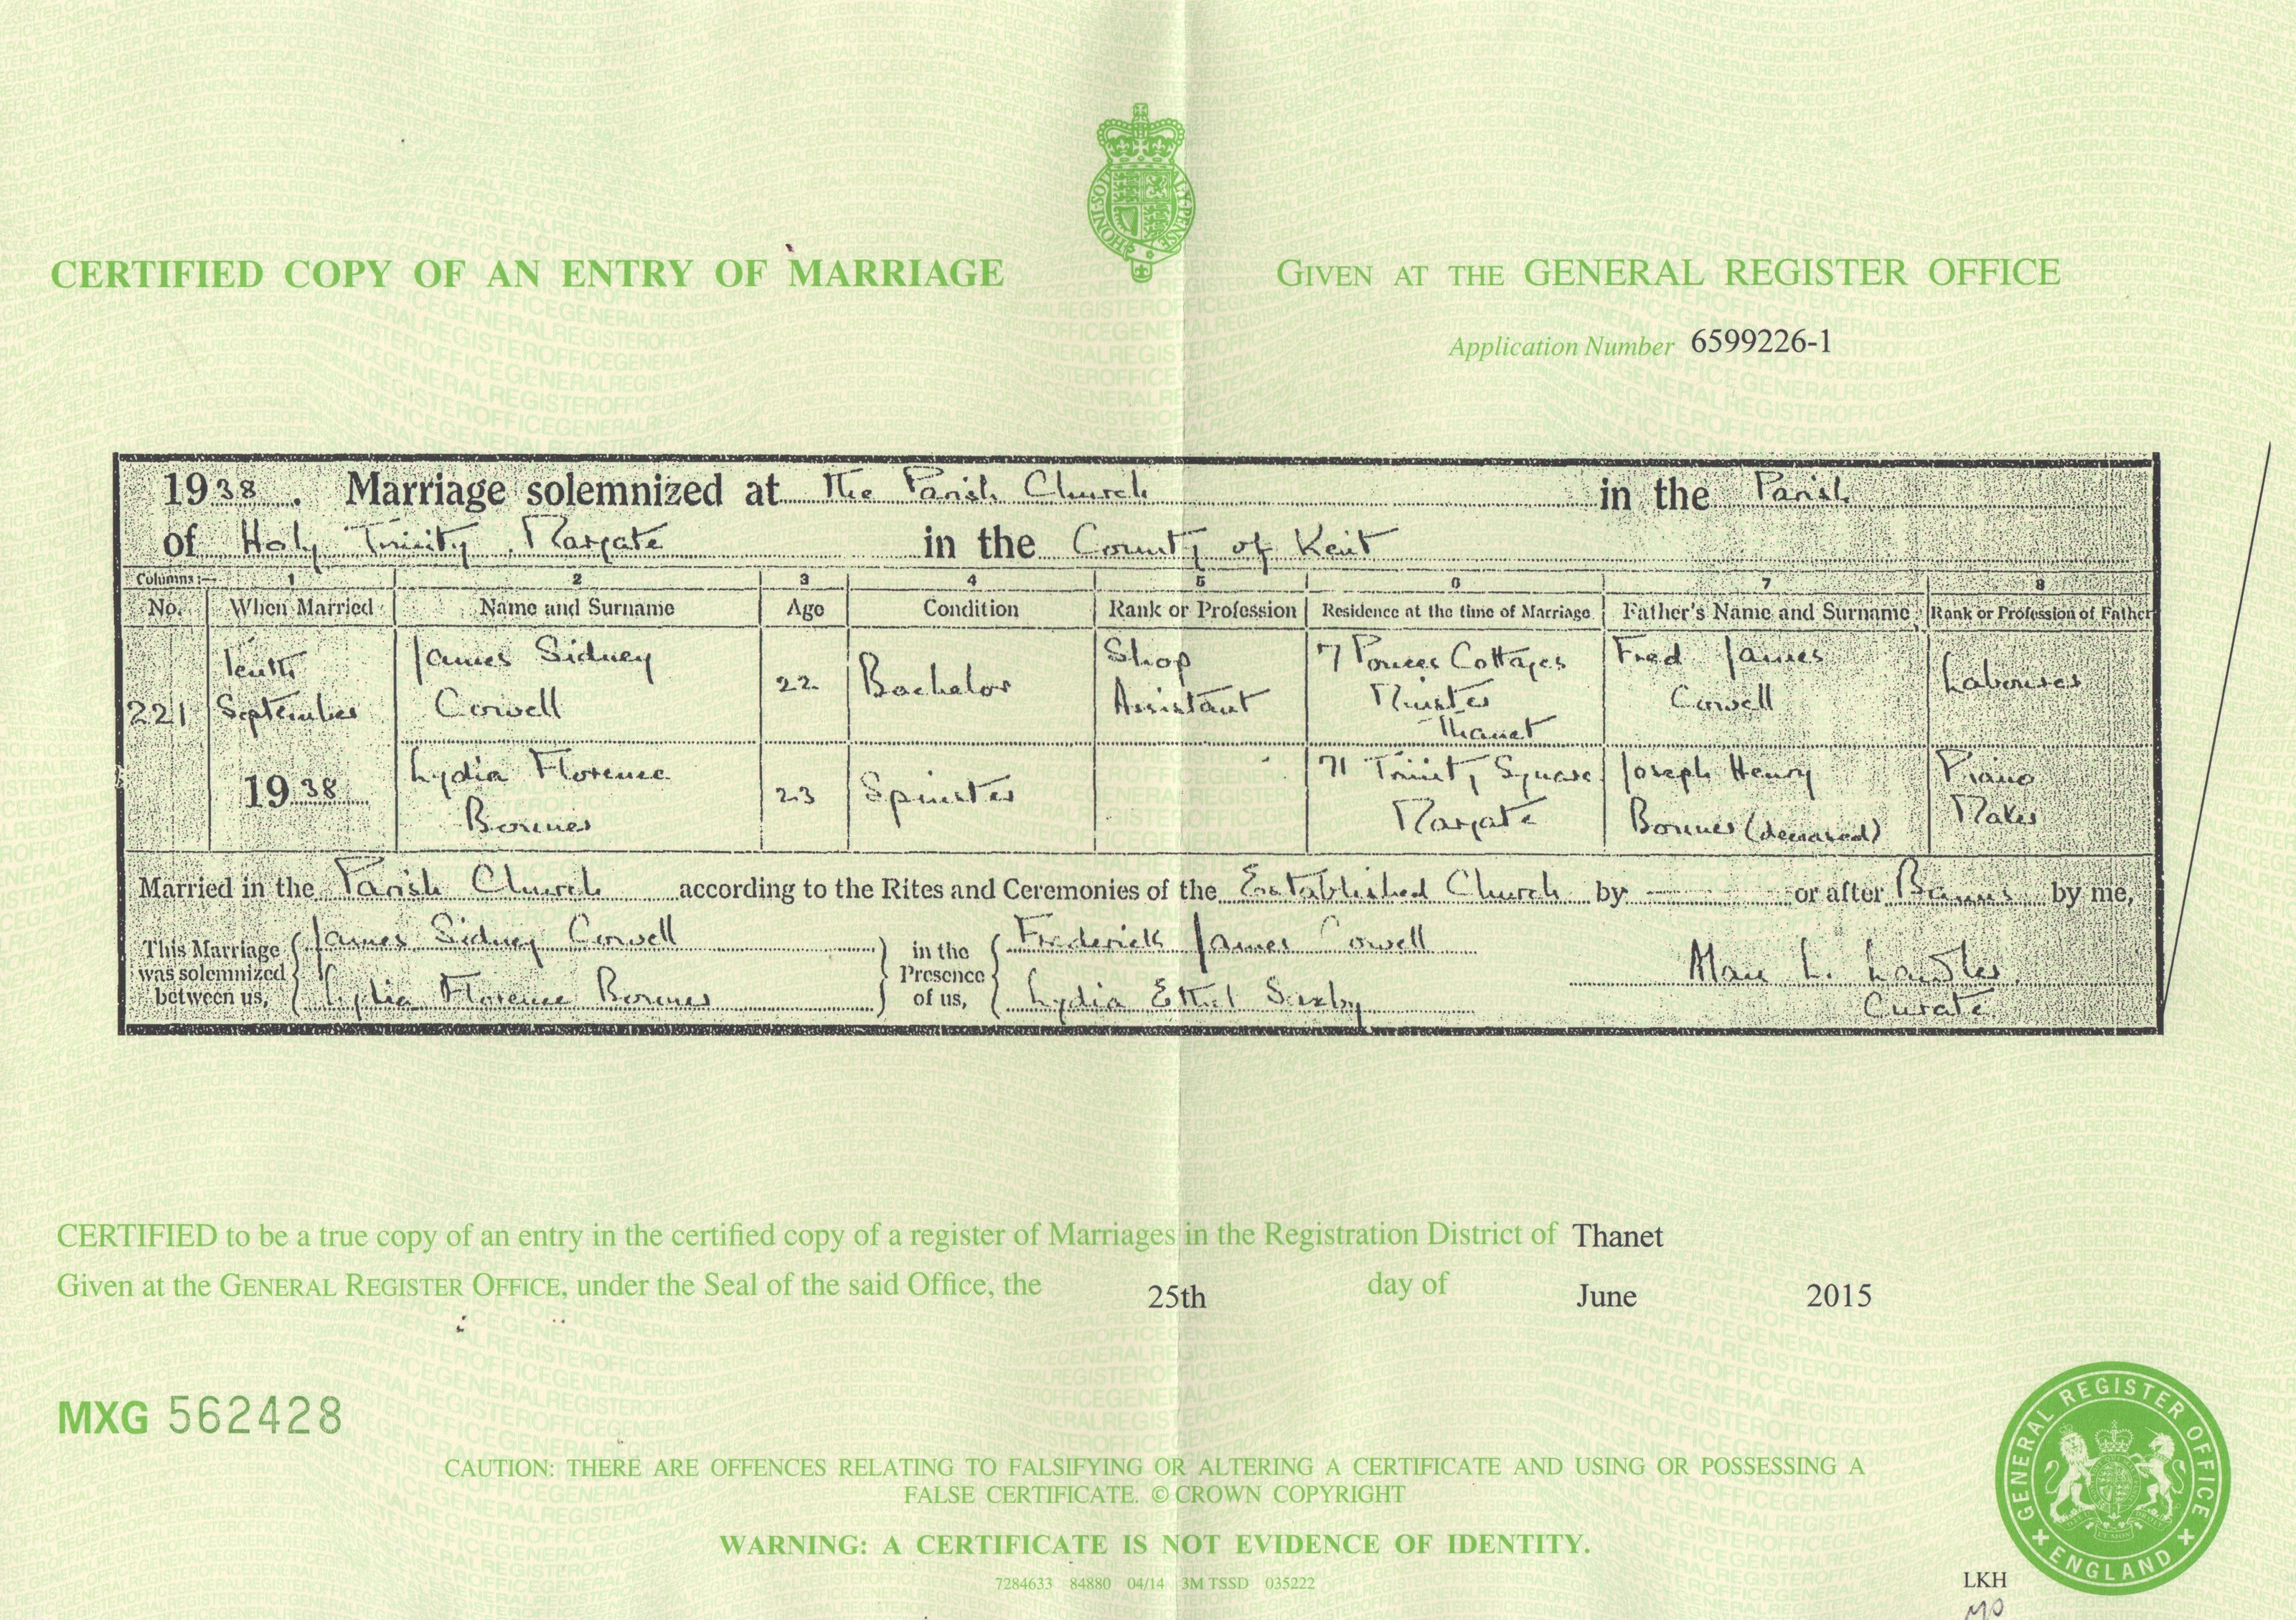 HONI·SOIT·QUI·MAL·Y·PENSE
CERTIFIED COPY OF AN ENTRY OF MARRIAGE
GIVEN AT THE GENERAL REGISTER OFFICE
Application Number 6599226-1
1938. Marriage solemnized at The Parish Church in the Parish
of Holy Trinity, Margate in the County of Kent
Columns:— 1 2 3 4 5 6 7 8
No. When Married Name and Surname Age Condition Rank or Profession Residence at the time of Marriage Father's Name and Surname Rank or Profession of Father
221 Tenth September 1938
James Sidney Cowell 22 Bachelor Shop Assistant 7 Cottages Minster Thanet Fred James Cowell Labourer
Lydia Florence Bonner 23 Spinster 71 Trinity Square Margate Joseph Henry Bonner (deceased) Piano Maker
Married in the Parish Church according to the Rites and Ceremonies of the Established Church by — or after Banns by me,
This Marriage was solemnized between us, James Sidney Cowell Lydia Florence Bonner in the Presence of us, Frederick James Cowell Lydia Ethel Saxby
L. Curate
CERTIFIED to be a true copy of an entry in the certified copy of a register of Marriages in the Registration District of Thanet
Given at the GENERAL REGISTER OFFICE, under the Seal of the said Office, the 25th day of June 2015
MXG 562428
CAUTION: THERE ARE OFFENCES RELATING TO FALSIFYING OR ALTERING A CERTIFICATE AND USING OR POSSESSING A
FALSE CERTIFICATE. © CROWN COPYRIGHT
WARNING: A CERTIFICATE IS NOT EVIDENCE OF IDENTITY.
7284633 84880 04/14 3M TSSD 035222
GENERAL REGISTER OFFICE
ENGLAND
LKH